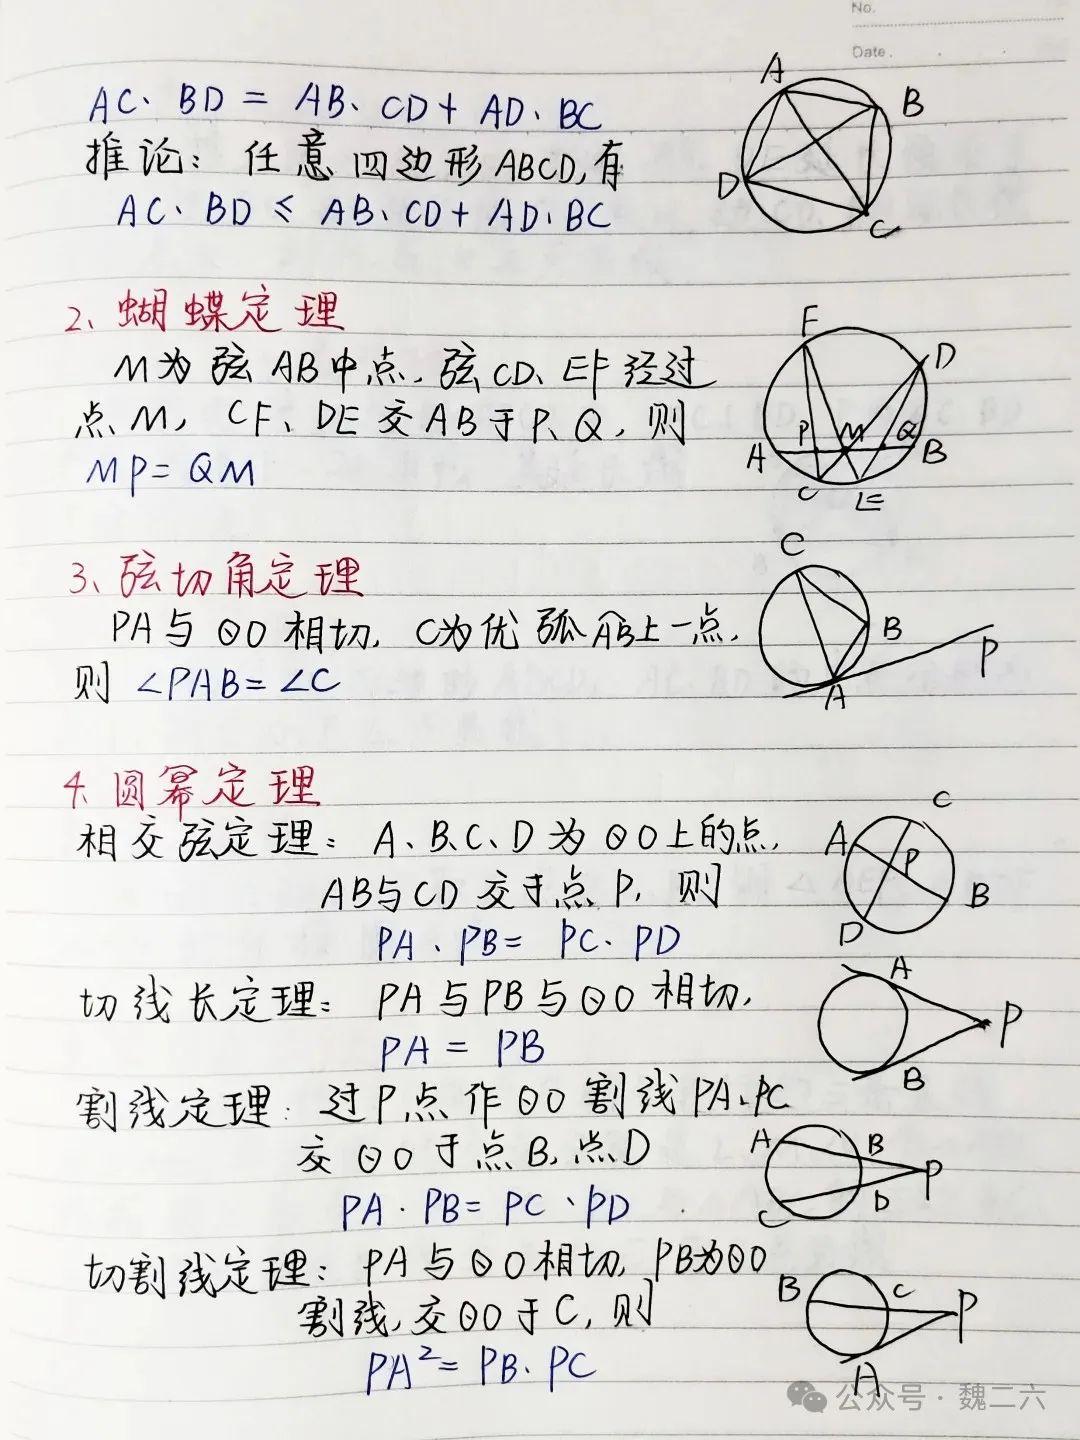 No.
Date.
AC·BD = AB·CD + AD·BC
推论: 任意四边形ABCD,有
AC·BD ≤ AB·CD + AD·BC
A
B
D
C
2、蝴蝶定理
M为弦AB中点,弦CD、EF经过
点M, CF、DE交AB于P、Q,则
MP=QM
F
D
A P M Q B
C E
3、弦切角定理
PA与⊙O相切, C为优弧AB上一点,
则 ∠PAB=∠C
C
B
P
A
4、圆幂定理
相交弦定理: A、B、C、D为⊙O上的点,
AB与CD交于点P, 则
PA·PB= PC·PD
C
A
P
B
D
切线长定理: PA与PB与⊙O相切,
PA = PB
A
P
B
割线定理: 过P点作⊙O割线PA、PC
交⊙O于点B、点D
PA·PB=PC·PD
A B
P
C D
切割线定理: PA与⊙O相切, PB为⊙O
割线,交⊙O于C,则
PA²=PB·PC
B C P
A
公众号·魏二六